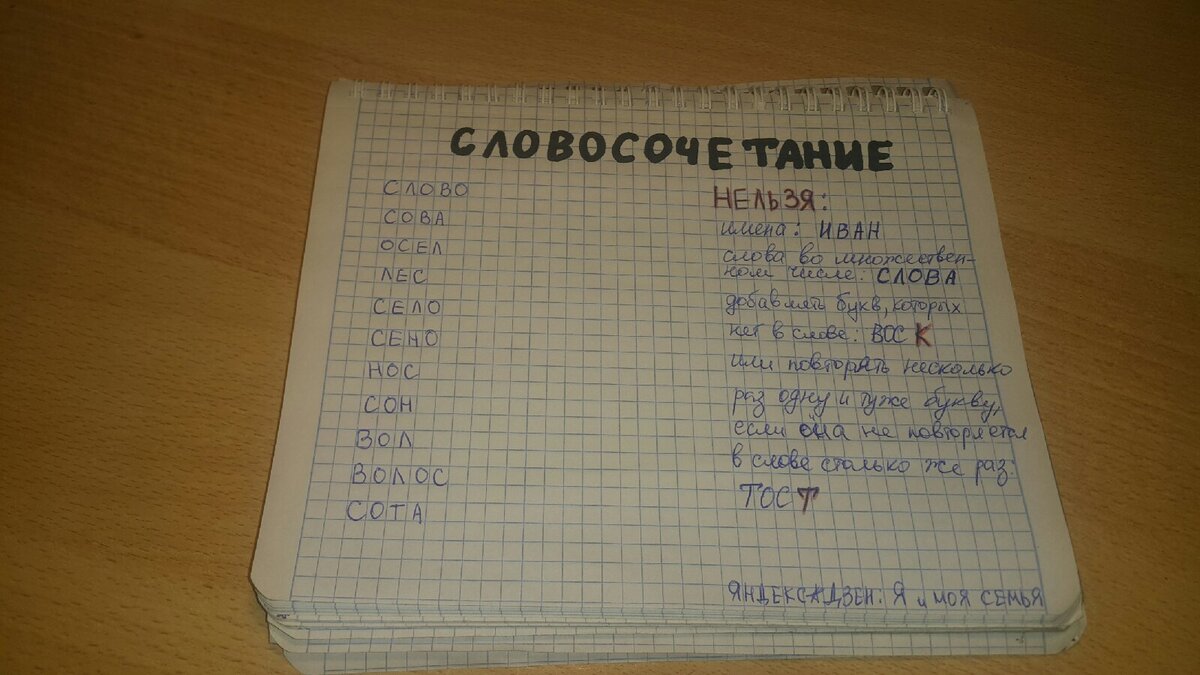 СЛОВОСОЧЕТАНИЕ
СЛОВО
СОВА
ОСЕЛ
ЛЕС
СЕЛО
СЕНО
НОС
СОН
ВОЛ
ВОЛОС
СОТА
НЕЛЬЗЯ:
имена: ИВАН
слова во множествен-
ном числе: СЛОВА
добавлять букв, которых
нет в слове: ВОСК
или повторять несколько
раз одну и туже букву,
если она не повторяется
в слове столько же раз:
ТОСТ
ЯНДЕКСДЗЕН: Я и МОЯ СЕМЬЯ